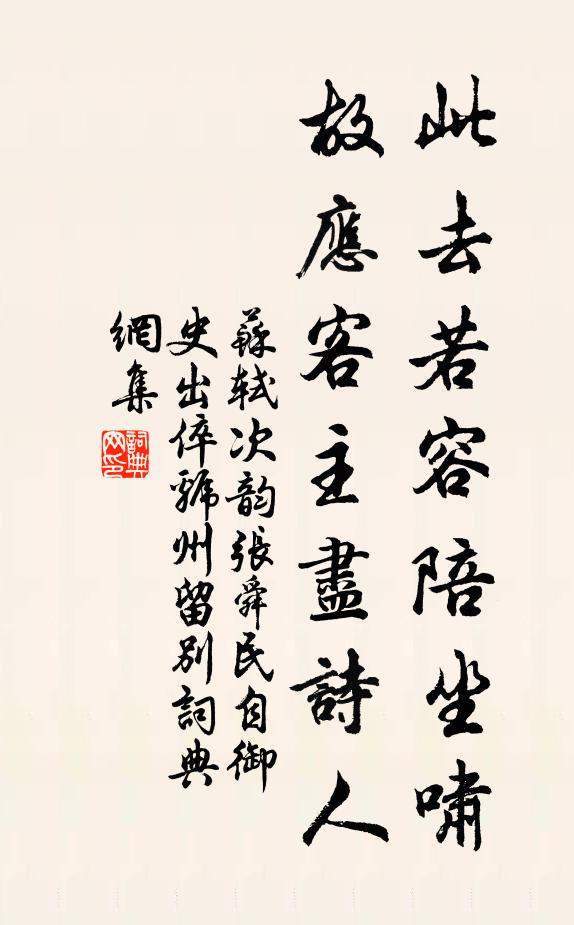 此去若容陪坐嘯
故應客主盡詩人
蘇軾次韵張舜民自御
史出倅虢州留别詞典
網集
詞典
网印